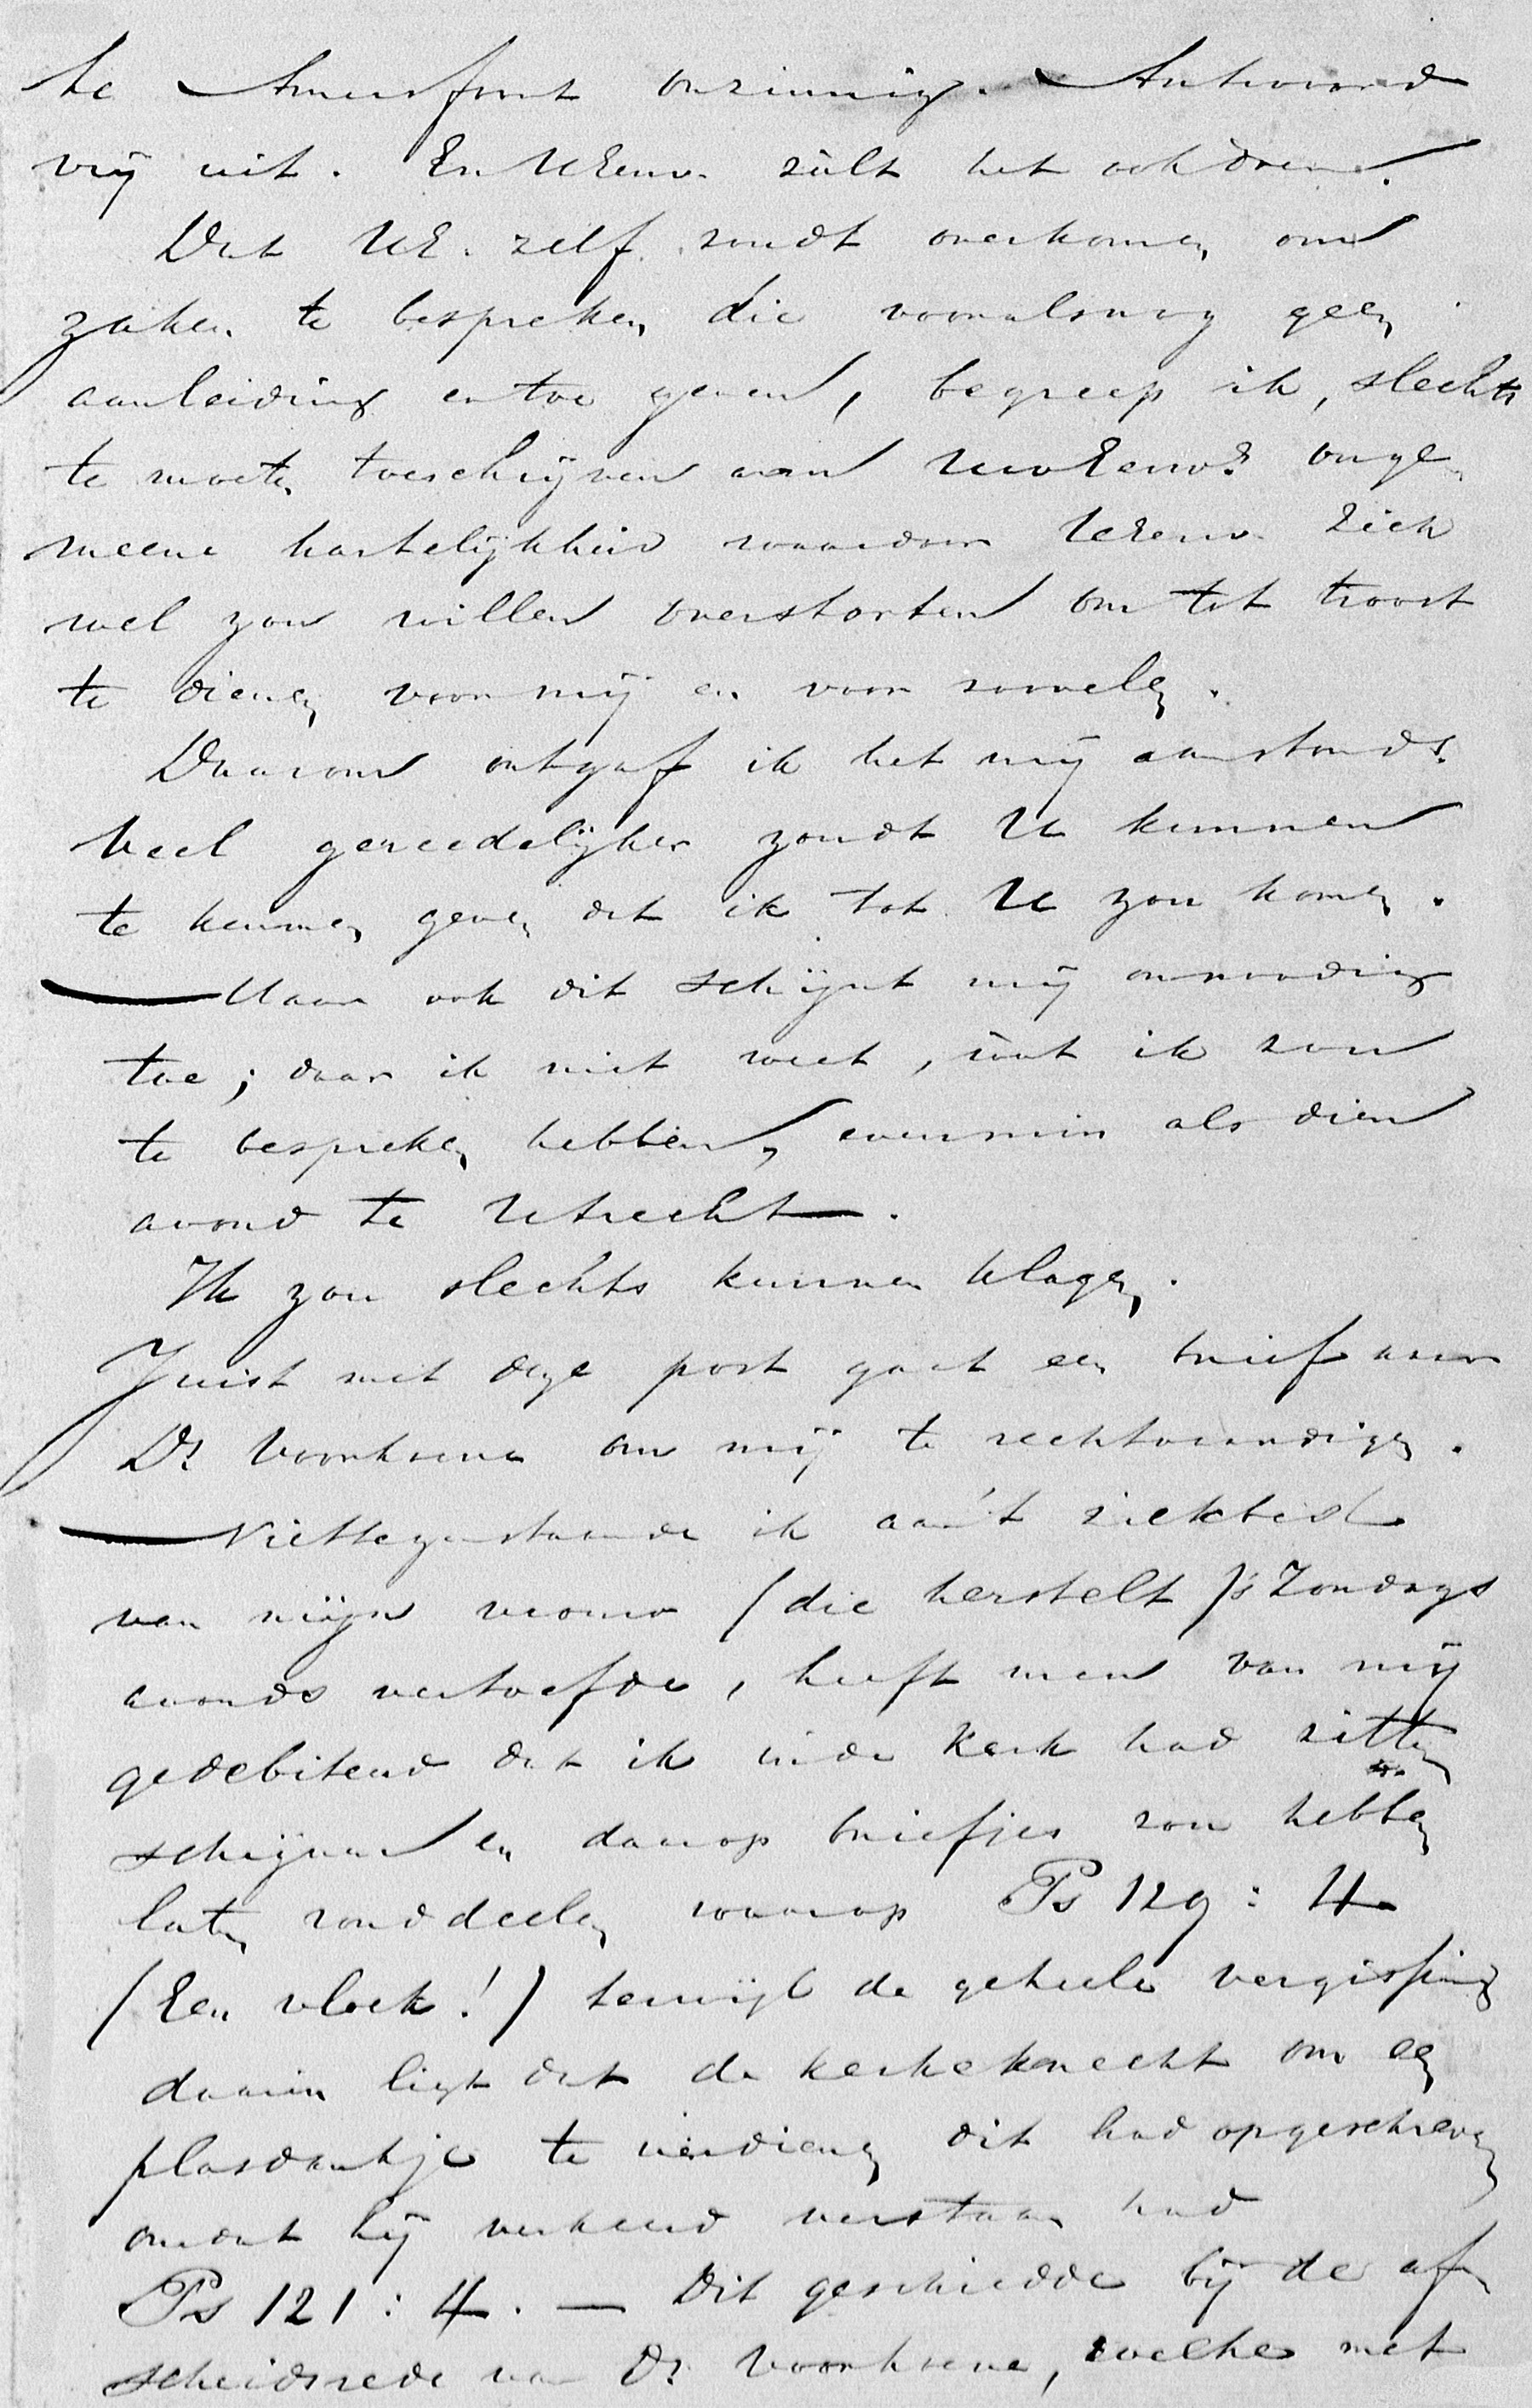 te Amersfoort onzinnig. Antwoord
vrij uit. En UEerw. zult het ook doen.
Dat UE. zelf zoudt overkomen om
zaken te bespreken die vooralsnog geen
aanleiding ertoe geven, begreep ik, slechts
te moeten toeschrijven aan UwEerws onge-
meene hartelijkheid waardoor UEerw. zich
wel zou willen overstorten om tot troost
te dienen voor mij en voor zoovelen.
Daarom ontgaf ik het mij aanstonds.
Veel gereedelijker zoudt U kunnen
te kennen geven dat ik tot U zou komen.
— Maar ook dit schijnt mij onnoodig
toe; daar ik niet weet, wat ik zou
te bespreken hebben, evenmin als dien
avond te Utrecht.
Ik zou slechts kunnen klagen.
Juist met deze post gaat een brief aan
Ds Voorhoeve om mij te rechtvaardigen.
— Niettegenstaande ik aan 't ziekbed
van mijn vrouw (die herstelt) 's Zondags
avonds vertoefde, heeft men van mij
gedebiteerd dat ik in de Kerk had zitten
schrijven en daarop briefjes zou hebben
laten ronddeelen waarop Ps 129 : 4
(Een vloek!) terwijl de geheele vergissing
daarin ligt dat de kerkeknecht om een
plasdankje te verdienen dit had opgeschreven
omdat hij verkeerd verstaan had
Ps 121 : 4. — Dit geschiedde bij de af-
scheidsrede van Ds Voorhoeve, welke met